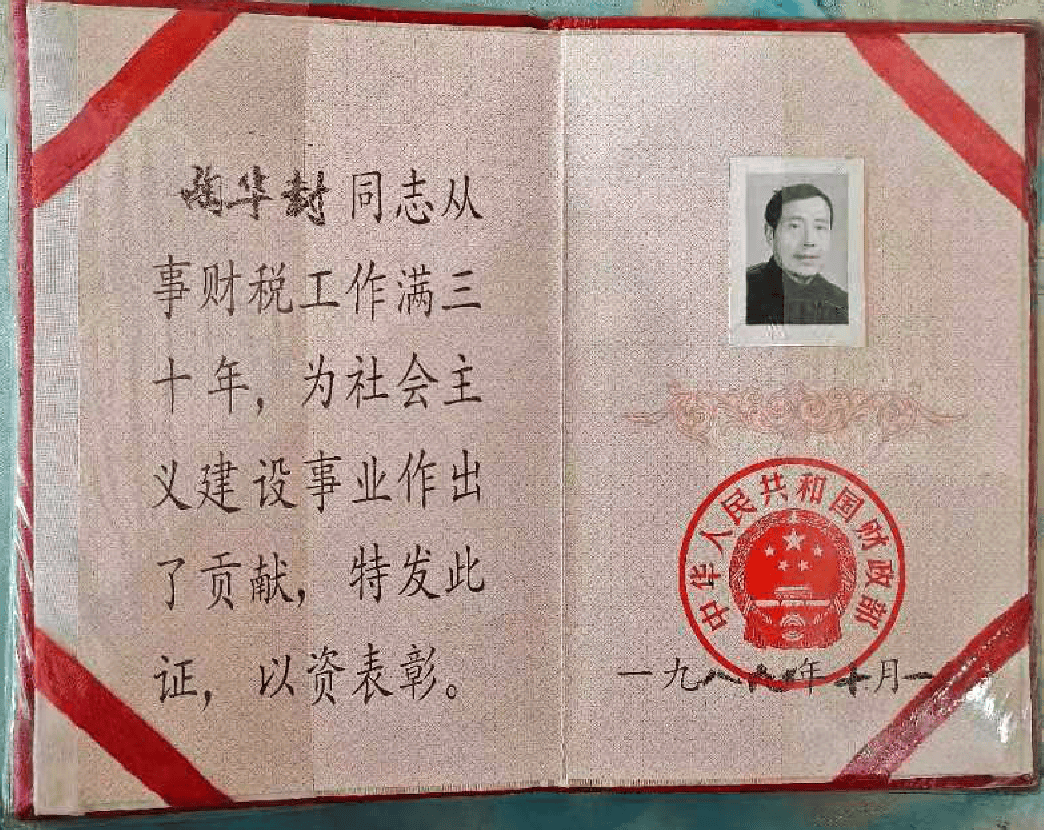 陶华封同志从
事财税工作满三
十年，为社会主
义建设事业作出
了贡献，特发此
证，以资表彰。
中华人民共和国财政部
一九八年十月一